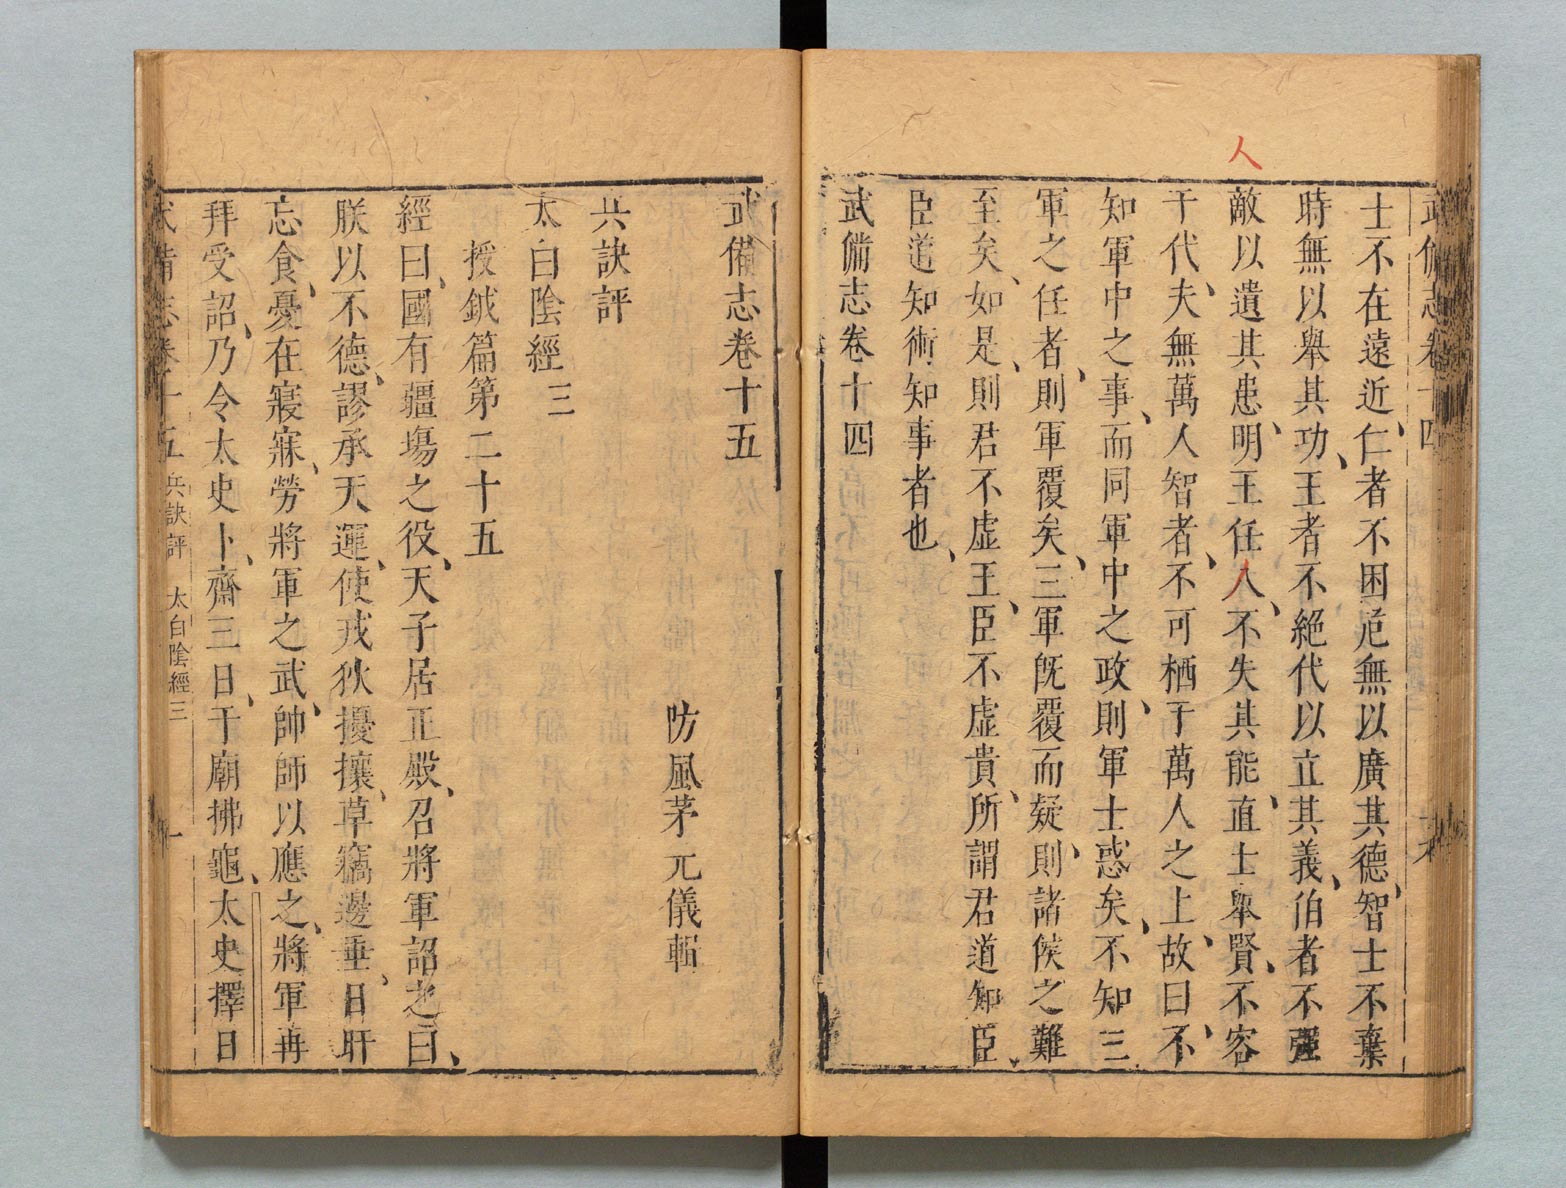 武備志卷十四
士不在遠近、仁者不困厄無以廣其德、智士不棄
時無以舉其功、王者不絕代以立其義、伯者不彊
敵以遺其患、明王任人、不失其能、直士舉賢、不容
人
于代、夫無萬人智者、不可栖于萬人之上、故曰、不
知軍中之事、而同軍中之政、則軍士惑矣、不知三
軍之任者、則軍覆矣、三軍旣覆而疑、則諸侯之難
至矣、如是、則君不虛王、臣不虛貴、所謂君道知臣、
臣道知術、知事者也、
武備志卷十四
武備志卷十五
防風茅元儀輯
兵訣評
太白陰經三
授鉞篇第二十五
經曰、國有疆場之役、天子居正殿、召將軍詔之曰、
朕以不德、謬承天運、使戎狄擾攘、草竊邊垂、日旰
忘食、憂在寢寐、勞將軍之武、帥師以應之、將軍再
拜受詔、乃令太史卜、齋三日、于廟拂龜、太史擇日
武備志卷十五 兵訣評 太白陰經三 一